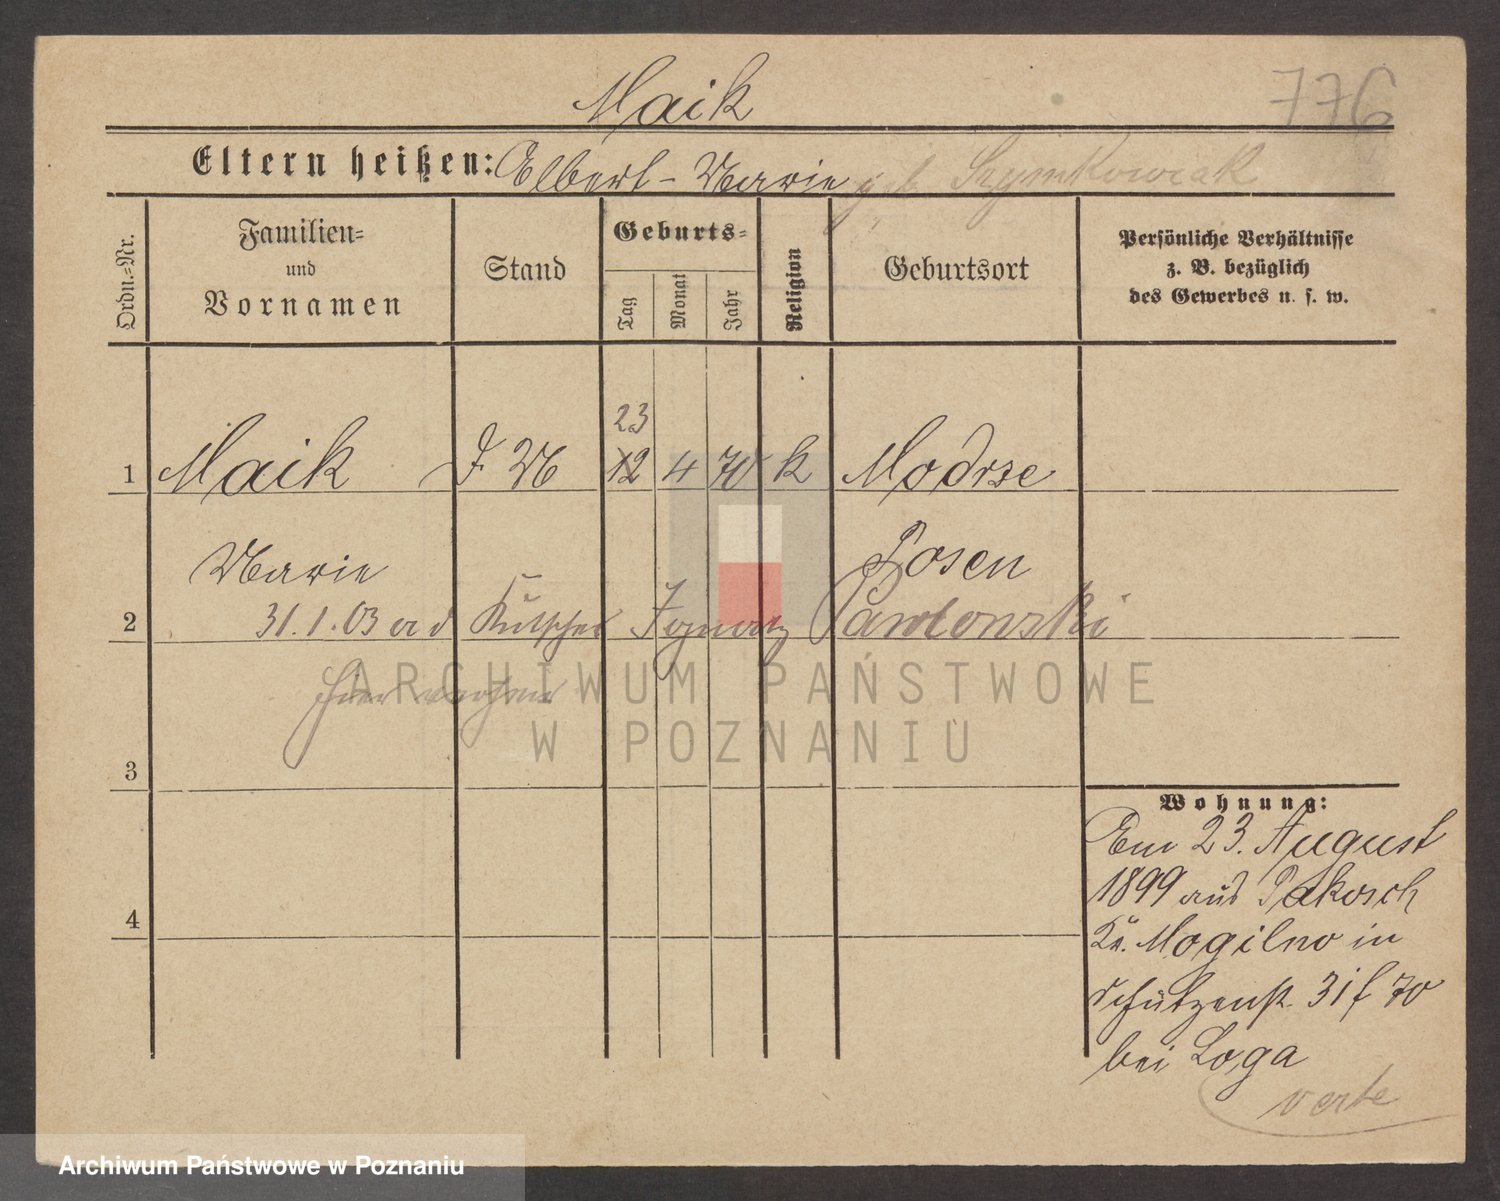 Maik
776
Eltern heißen: Albert - Marie geb Szymkowiak
Ordn.=Nr.
Familien=
und
Vornamen
Stand
Geburts=
Tag
Monat
Jahr
Religion
Geburtsort
Persönliche Verhältnisse
z. B. bezüglich
des Gewerbes u. s. w.
23
1 Maik d. M 12 4 70 k Modrze
Marie Posen
2 31.1.03 Kutscher Ignatz Pawlowski
hier
3
4
Wohnung:
Am 23. August
1899 aus Pakosch
Kr. Mogilno in
Schützenstr. 31 f 70
bei Loga
verte
ARCHIWUM PAŃSTWOWE
W POZNANIU
Archiwum Państwowe w Poznaniu